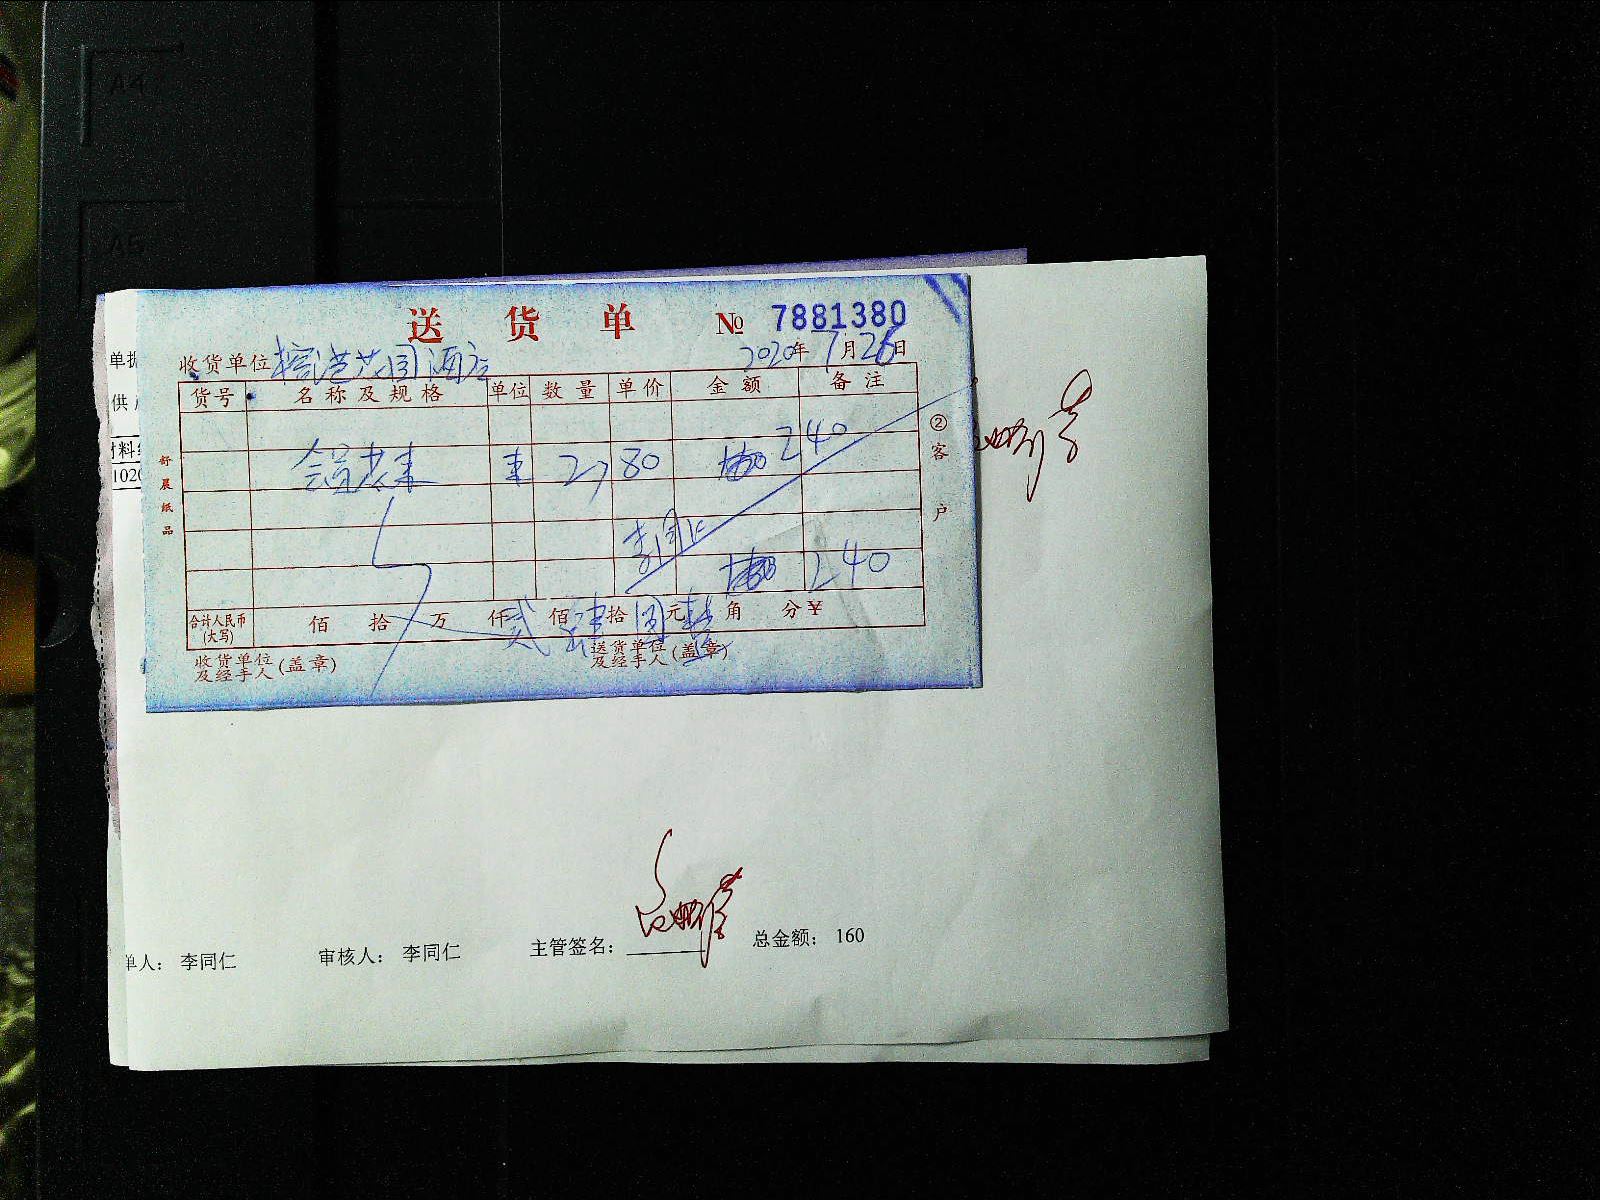 A4
A5
送货单 № 7881380
单据
收货单位 2020年7月26日
供
货号 名称及规格 单位 数量 单价 金额 备注
材料
1020
束 80 240
李同仁
240
合计人民币(大写) 佰 拾 万 仟 贰 佰 肆 拾 圆 元 整 角 分 ¥
收货单位及经手人(盖章) 送货单位及经手人(盖章)
②客户
舒晨纸品
单人: 李同仁 审核人: 李同仁 主管签名: 总金额: 160